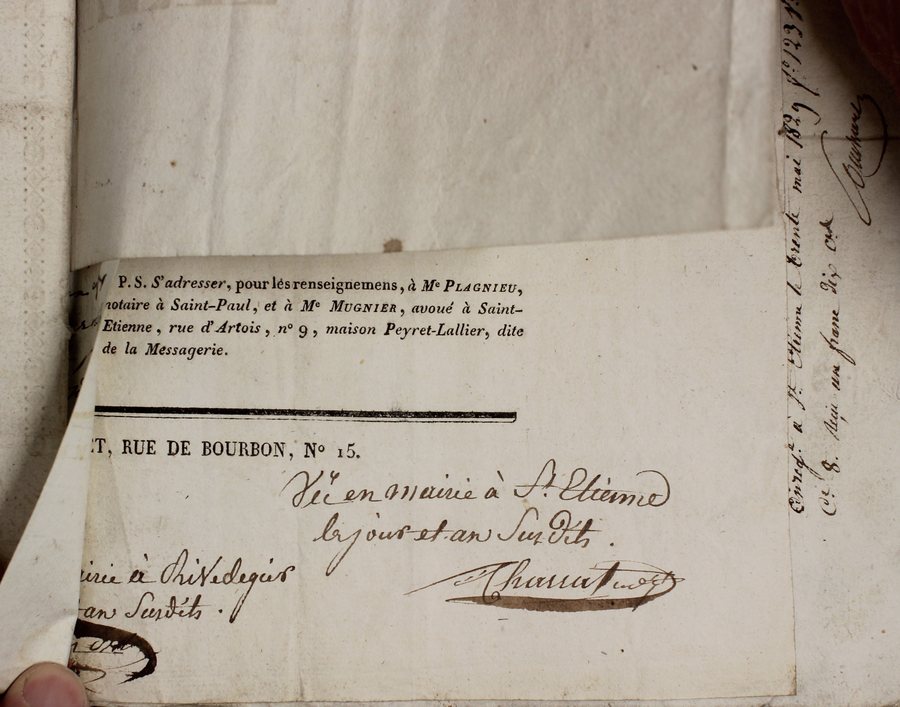 P. S. S'adresser, pour les renseignemens, à Me PLAGNIEU,
notaire à Saint-Paul, et à Me MUGNIER, avoué à Saint-
Etienne, rue d'Artois, no 9, maison Peyret-Lallier, dite
de la Messagerie.
ET, RUE DE BOURBON, No 15.
Vu en mairie à St. Etienne
le jour et an Susdits.
airie à Rivedegier
an Susdits.
Enregé à St. Etienne le trente mai 1829 fo. 123
8. Reçu un franc dix